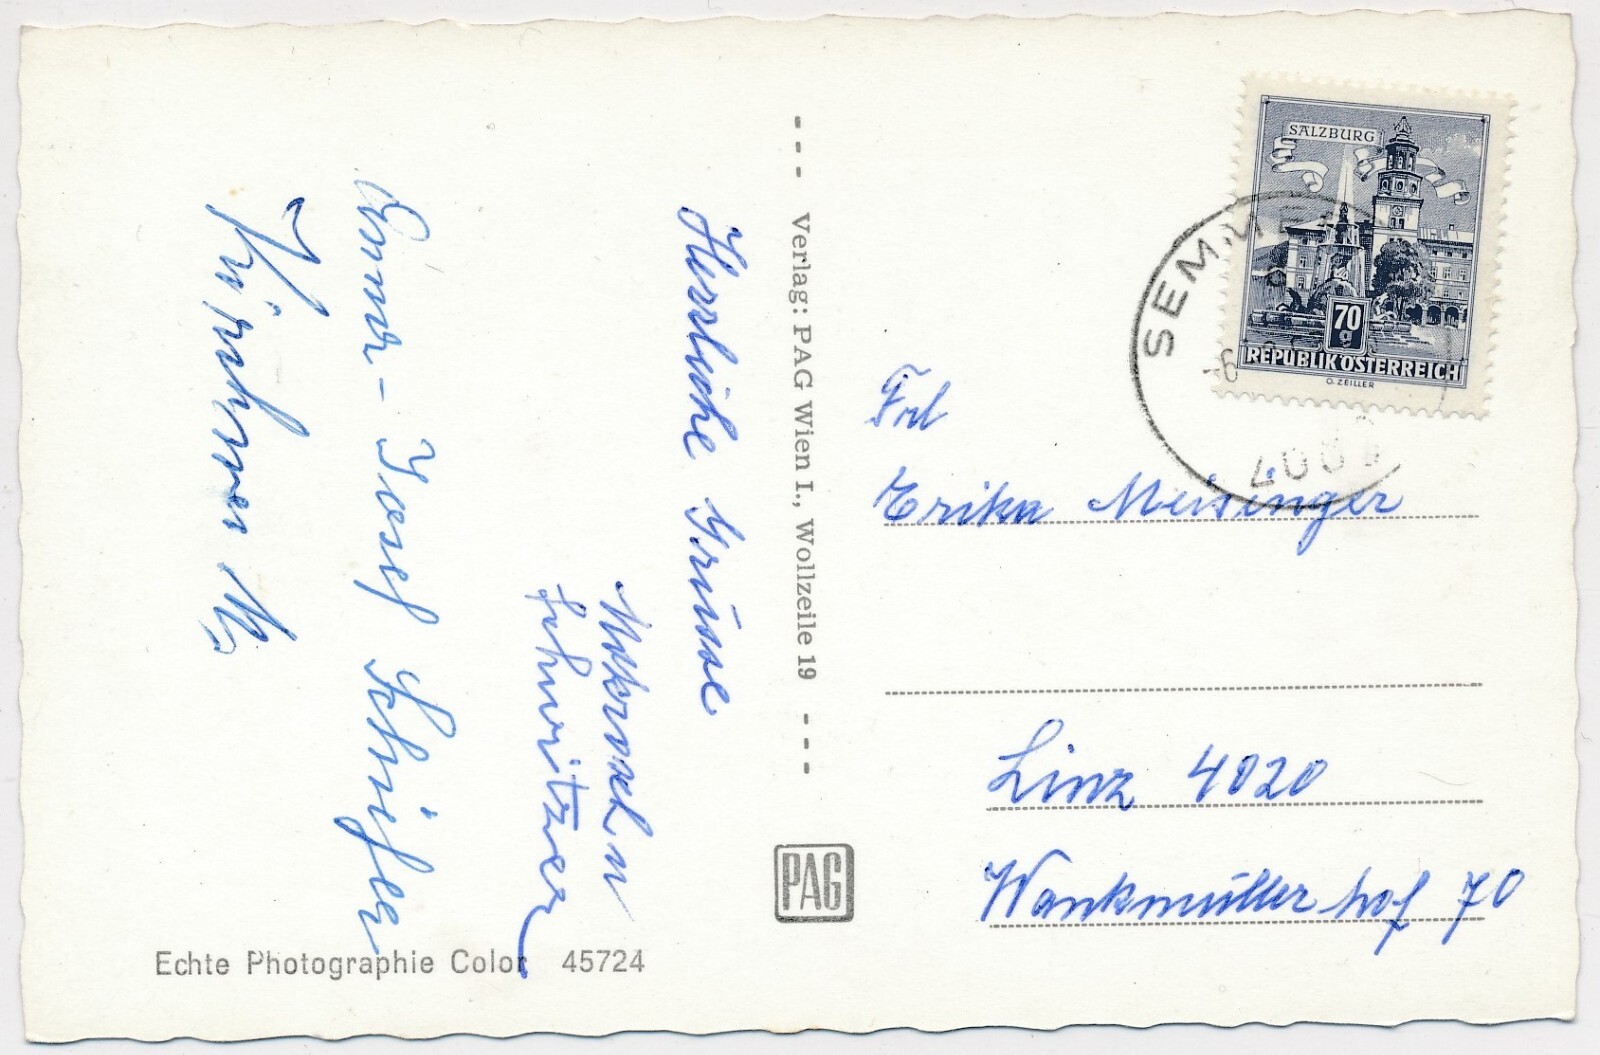 Herrliche Grüsse
Schweitzer
Anna - Josef
Verlag: PAG Wien I., Wollzeile 19
PAG
Echte Photographie Color 45724
SALZBURG
70
g
REPUBLIK ÖSTERREICH
O. ZEILLER
SEMME
-6
Frl
Erika Meisinger
Linz 4020
Wankmüllerhof 70